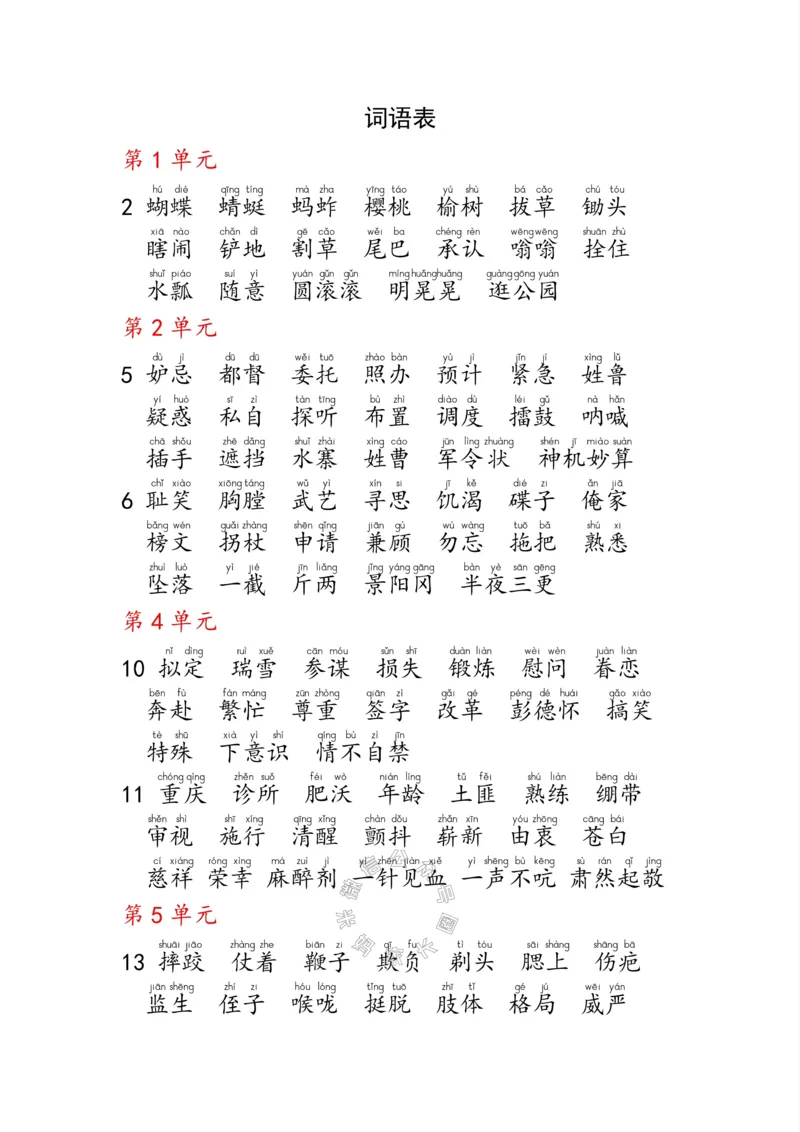 词语表
第1单元
hú dié qīng tíng mà zha yīng táo yú shù bá cǎo chú tóu
2 蝴蝶 蜻蜓 蚂蚱 樱桃 榆树 拔草 锄头
xiā nào chǎn dì gē cǎo wěi ba chéng rèn wēng wēng shuān zhù
瞎闹 铲地 割草 尾巴 承认 嗡嗡 拴住
shuǐ piáo suí yì yuán gǔn gǔn míng huǎng huǎng guàng gōng yuán
水瓢 随意 圆滚滚 明晃晃 逛公园
第2单元
dù jì dū dū wěi tuō zhào bàn yù jì jǐn jí xìng lǔ
5 妒忌 都督 委托 照办 预计 紧急 姓鲁
yí huò sī zì tàn tīng bù zhì diào dù léi gǔ nà hǎn
疑惑 私自 探听 布置 调度 擂鼓 呐喊
chā shǒu zhē dǎng shuǐ zhài xìng cáo jūn lìng zhuàng shén jī miào suàn
插手 遮挡 水寨 姓曹 军令状 神机妙算
chǐ xiào xiōng táng wǔ yì xín si jī kě dié zi ǎn jiā
6 耻笑 胸膛 武艺 寻思 饥渴 碟子 俺家
bǎng wén guǎi zhàng shēn qǐng jiān gù wù wàng tuō bǎ shú xi
榜文 拐杖 申请 兼顾 勿忘 拖把 熟悉
zhuì luò yì jié jīn liǎng jǐng yáng gāng bàn yè sān gēng
坠落 一截 斤两 景阳冈 半夜三更
第4单元
nǐ dìng ruì xuě cān móu sǔn shī duàn liàn wèi wèn juàn liàn
10 拟定 瑞雪 参谋 损失 锻炼 慰问 眷恋
bēn fù fán máng zūn zhòng qiān zì gǎi gé péng dé huái gǎo xiào
奔赴 繁忙 尊重 签字 改革 彭德怀 搞笑
tè shū xià yì shí qíng bú zì jīn
特殊 下意识 情不自禁
chóng qìng zhěn suǒ féi wò nián líng tǔ fěi shú liàn bēng dài
11 重庆 诊所 肥沃 年龄 土匪 熟练 绷带
shěn shì shī xíng qīng xǐng chàn dǒu zhǎn xīn yóu zhōng cāng bái
审视 施行 清醒 颤抖 崭新 由衷 苍白
cí xiáng róng xìng má zuì jì yì zhēn jiàn xiě yì shēng bù kēng sù rán qǐ jìng
慈祥 荣幸 麻醉剂 一针见血 一声不吭 肃然起敬
第5单元
shuāi jiāo zhàng zhe biān zi qī fu tì tóu sāi shàng shāng bā
13 摔跤 仗着 鞭子 欺负 剃头 腮上 伤疤
jiān shēng zhí zi hóu lóng tǐng tuō zhī tǐ gé jú wēi yán
监生 侄子 喉咙 挺脱 肢体 格局 威严